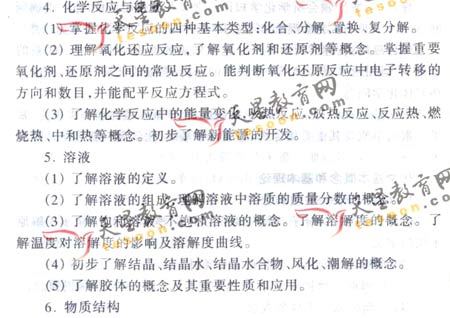 4. 化学反应与能量
(1) 掌握化学反应的四种基本类型:化合、分解、置换、复分解。
(2) 理解氧化还原反应,了解氧化剂和还原剂等概念。掌握重要
氧化剂、还原剂之间的常见反应。能判断氧化还原反应中电子转移的
方向和数目,并能配平反应方程式。
(3) 了解化学反应中的能量变化,吸热反应、放热反应、反应热、燃
烧热、中和热等概念。初步了解新能源的开发。
5. 溶液
(1) 了解溶液的定义。
(2) 了解溶液的组成,理解溶液中溶质的质量分数的概念。
(3) 了解饱和溶液、不饱和溶液的概念。了解溶解度的概念。了
解温度对溶解度的影响及溶解度曲线。
(4) 初步了解结晶、结晶水、结晶水合物、风化、潮解的概念。
(5) 了解胶体的概念及其重要性质和应用。
6. 物质结构
天星教育网
tesoon.com
天星教育网
tesoon.com
天星教育网
tesoon.com